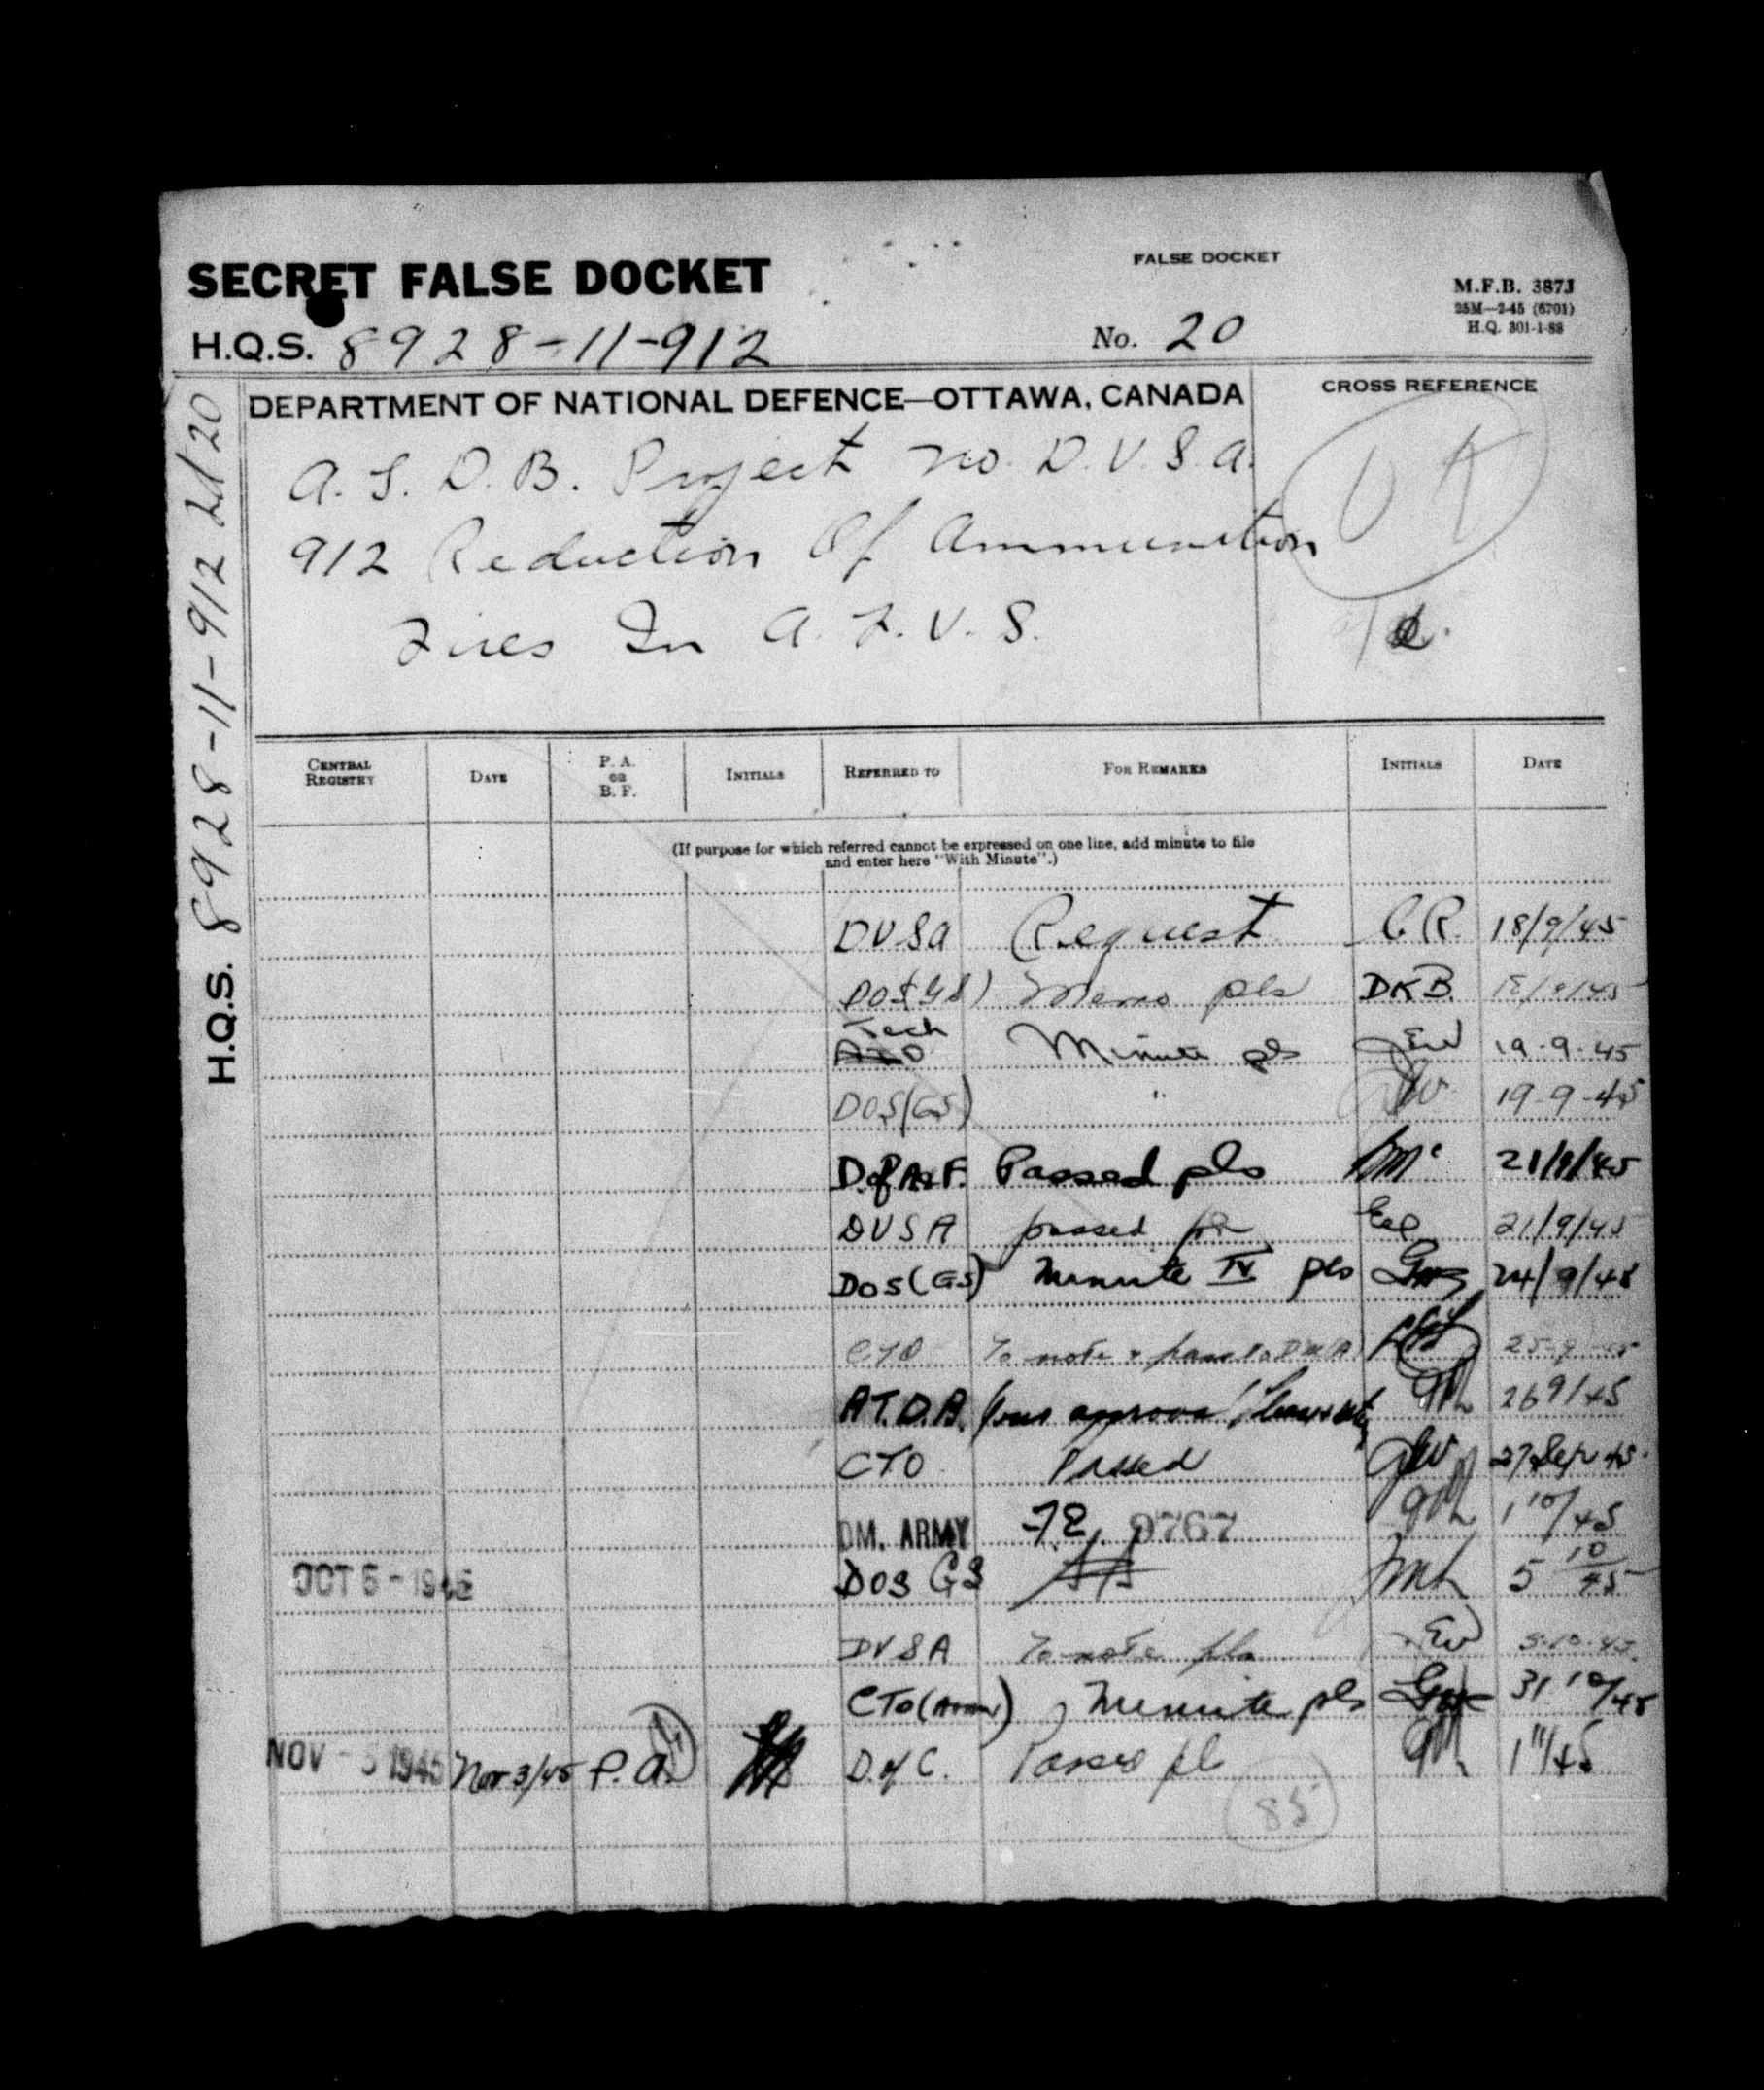 SECRET FALSE DOCKET
FALSE DOCKET
M.F.B. 387J
25M—2-45 (6701)
H.Q. 301-1-88
H.Q.S. 8928-11-912
No. 20
H.Q.S. 8928-11-912 20
DEPARTMENT OF NATIONAL DEFENCE—OTTAWA, CANADA
CROSS REFERENCE
A. S. D. B. Project no. D. V. S. A.
912 Reduction Of Ammunition
Fires In A. F. V. S.
CENTRAL REGISTRY DATE P. A. OR B. F. INITIALS REFERRED TO FOR REMARKS INITIALS DATE
(If purpose for which referred cannot be expressed on one line, add minute to file
and enter here "With Minute".)
DVSA Request C.R. 18/9/45
DOS(GS) Memo pls DKB
Tech Minute pls 19-9-45
DOS(GS) " 19-9-45
D of A&F. Passed pls 21/9/45
DVSA passed 21/9/45
DOS(GS) Minute IV pls 24/9/45
CTO To note & pass to DM(A) 25-9-45
A.T.D.B. 26 9/45
CTO Passed 27 Sep 45
DM. ARMY 72 9767 1 10/45
OCT 5 - 1945 DOS GS 5 10/45
DVSA To note pls 5-10-45
CTO (Army) Minute pls 31 10/45
NOV - 3 1945 Nov. 3/45 P.A. D. of C. Passed pl 1 11/45
85